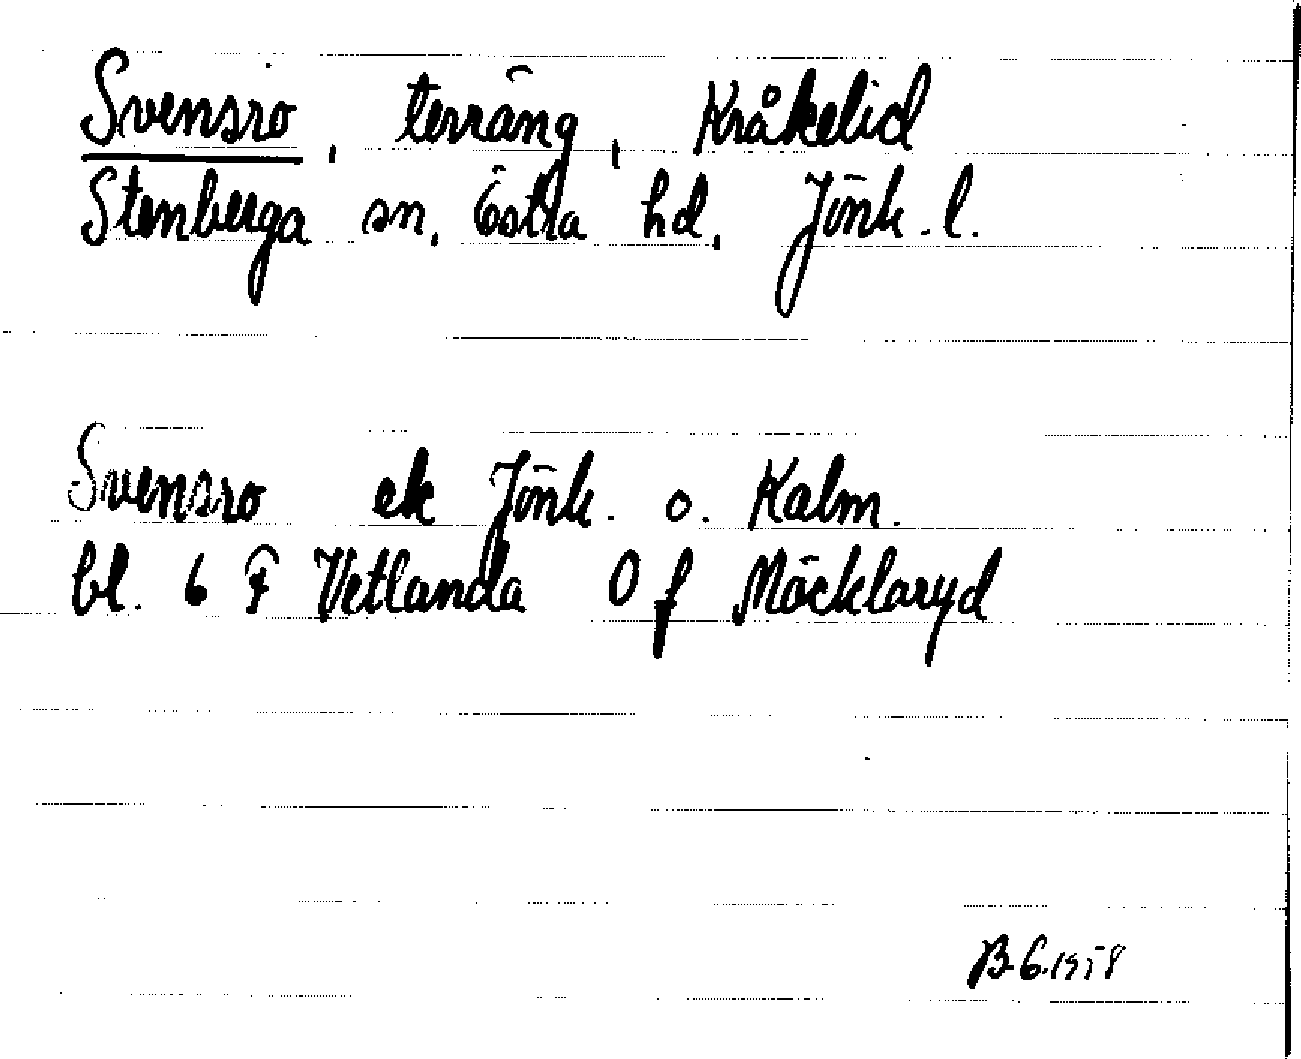 Svensro, terräng, Kråkelid
Stenberga sn, Östra hd, Jönk. l.
Svensro ek Jönk. o. Kalm.
bl. 6 F Vetlanda 0 f Möcklaryd
B.G. 1958